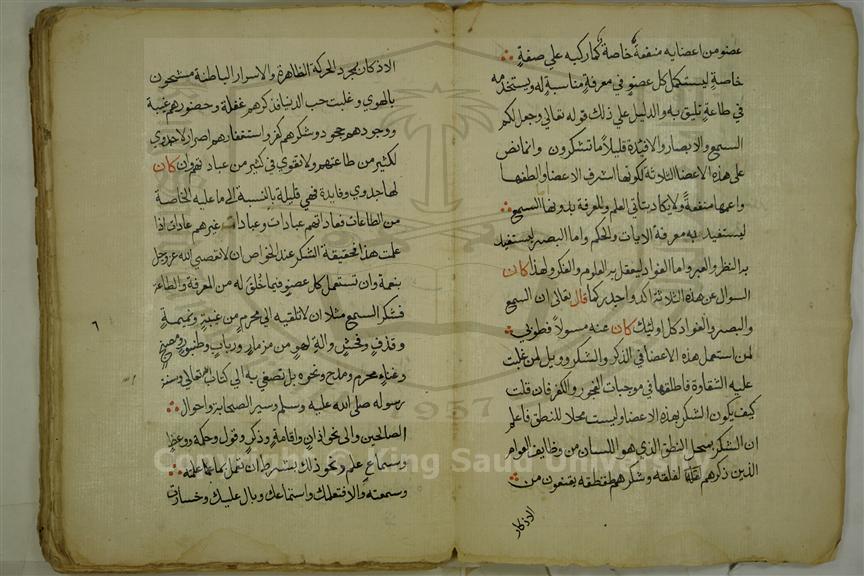 عضو من اعضايه منفعة خاصة كما ركبه علي صفة
خاصة ليستعمل كل عضو في معرفة مناسبة له ويستخدمه
في طاعة تليق به والدليل علي ذلك قوله تعالي وجعل لكم
السمع والابصار والافيدة قليلا ما تشكرون وانما نص
علي هذه الاعضا الثلاثة لكونها اشرف الاعضا والطفها
واعمها منفعة ولا يكاد يتأتي العلم والمعرفة بدونها السمع
ليستفيد به معرفة الايات والحكم واما البصر ليستفيد
به النظر والعبر واما الفواد ليعقل به العلوم والفكر ولهذا كان
السوال عن هذه الثلاثة اكد واجدر كما قال تعالي ان السمع
والبصر والفواد كل اوليك كان عنه مسولا فطوبي
لمن استعمل هذه الاعضا في الذكر والشكر وويل لمن غلبت
عليه الشقاوة فاطلقها في موجبات الفجور والكفر فان قلت
كيف يكون الشكر بهذه الاعضا وليست محلا للنطق فاعلم
ان الشكر بمحل النطق الذي هو اللسان من وظايف العوام
الذين ذكرهم لقلقه وشكرهم طقطقه يقنعون من
الاذكار
الاذكار بمجرد الحركة الظاهرة والاسرار الباطنة مشحون
بالهوي وغلبت حب الدنيا فذكرهم غفلة وحضورهم غيبة
ووجودهم جحود وشكرهم كفر واستغفارهم اصرار لا جدوي
لكثير من طاعتهم ولا تقوي في كثير من عبادتهم ان كان
لها جدوي وفايدة فهي قليلة بالنسبة الي ما عليه الخاصة
من الطاعات فعاداتهم عبادات وعبادات غيرهم عادات اذا
علمت هذا فحقيقة الشكر عند الخواص ان لا تعصي الله عز وجل
بنعمة وان تستعمل كل عضو فيما خلق له من المعرفة والطاعة
فشكر السمع مثلا ان لا تلقيه الي محرم من غيبة ونميمة
وقذف وفحش والة لهو من مزمار ورباب وطنبور وصنج
وغناء محرم وملح ونحوه بل تصغي به الي كتاب الله تعالي وسنة
رسوله صلي الله عليه وسلم وسير الصحابة واحوال
الصالحين والي نحو اذان واقامة وذكر وقول وحكمة ووعظ
وسماع علم ونحو ذلك بشرط ان تعمل بما علمته
وسمعته والا فتعلمك واستماعك وبال عليك وخسارة
٦
Copyright © King Saud University
1957